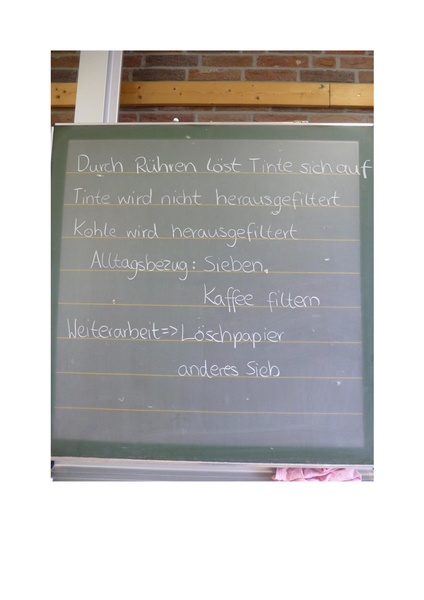 Durch Rühren löst Tinte sich auf
Tinte wird nicht herausgefiltert
Kohle wird herausgefiltert
Alltagsbezug: Sieben,
Kaffee filtern
Weiterarbeit => Löschpapier
anderes Sieb